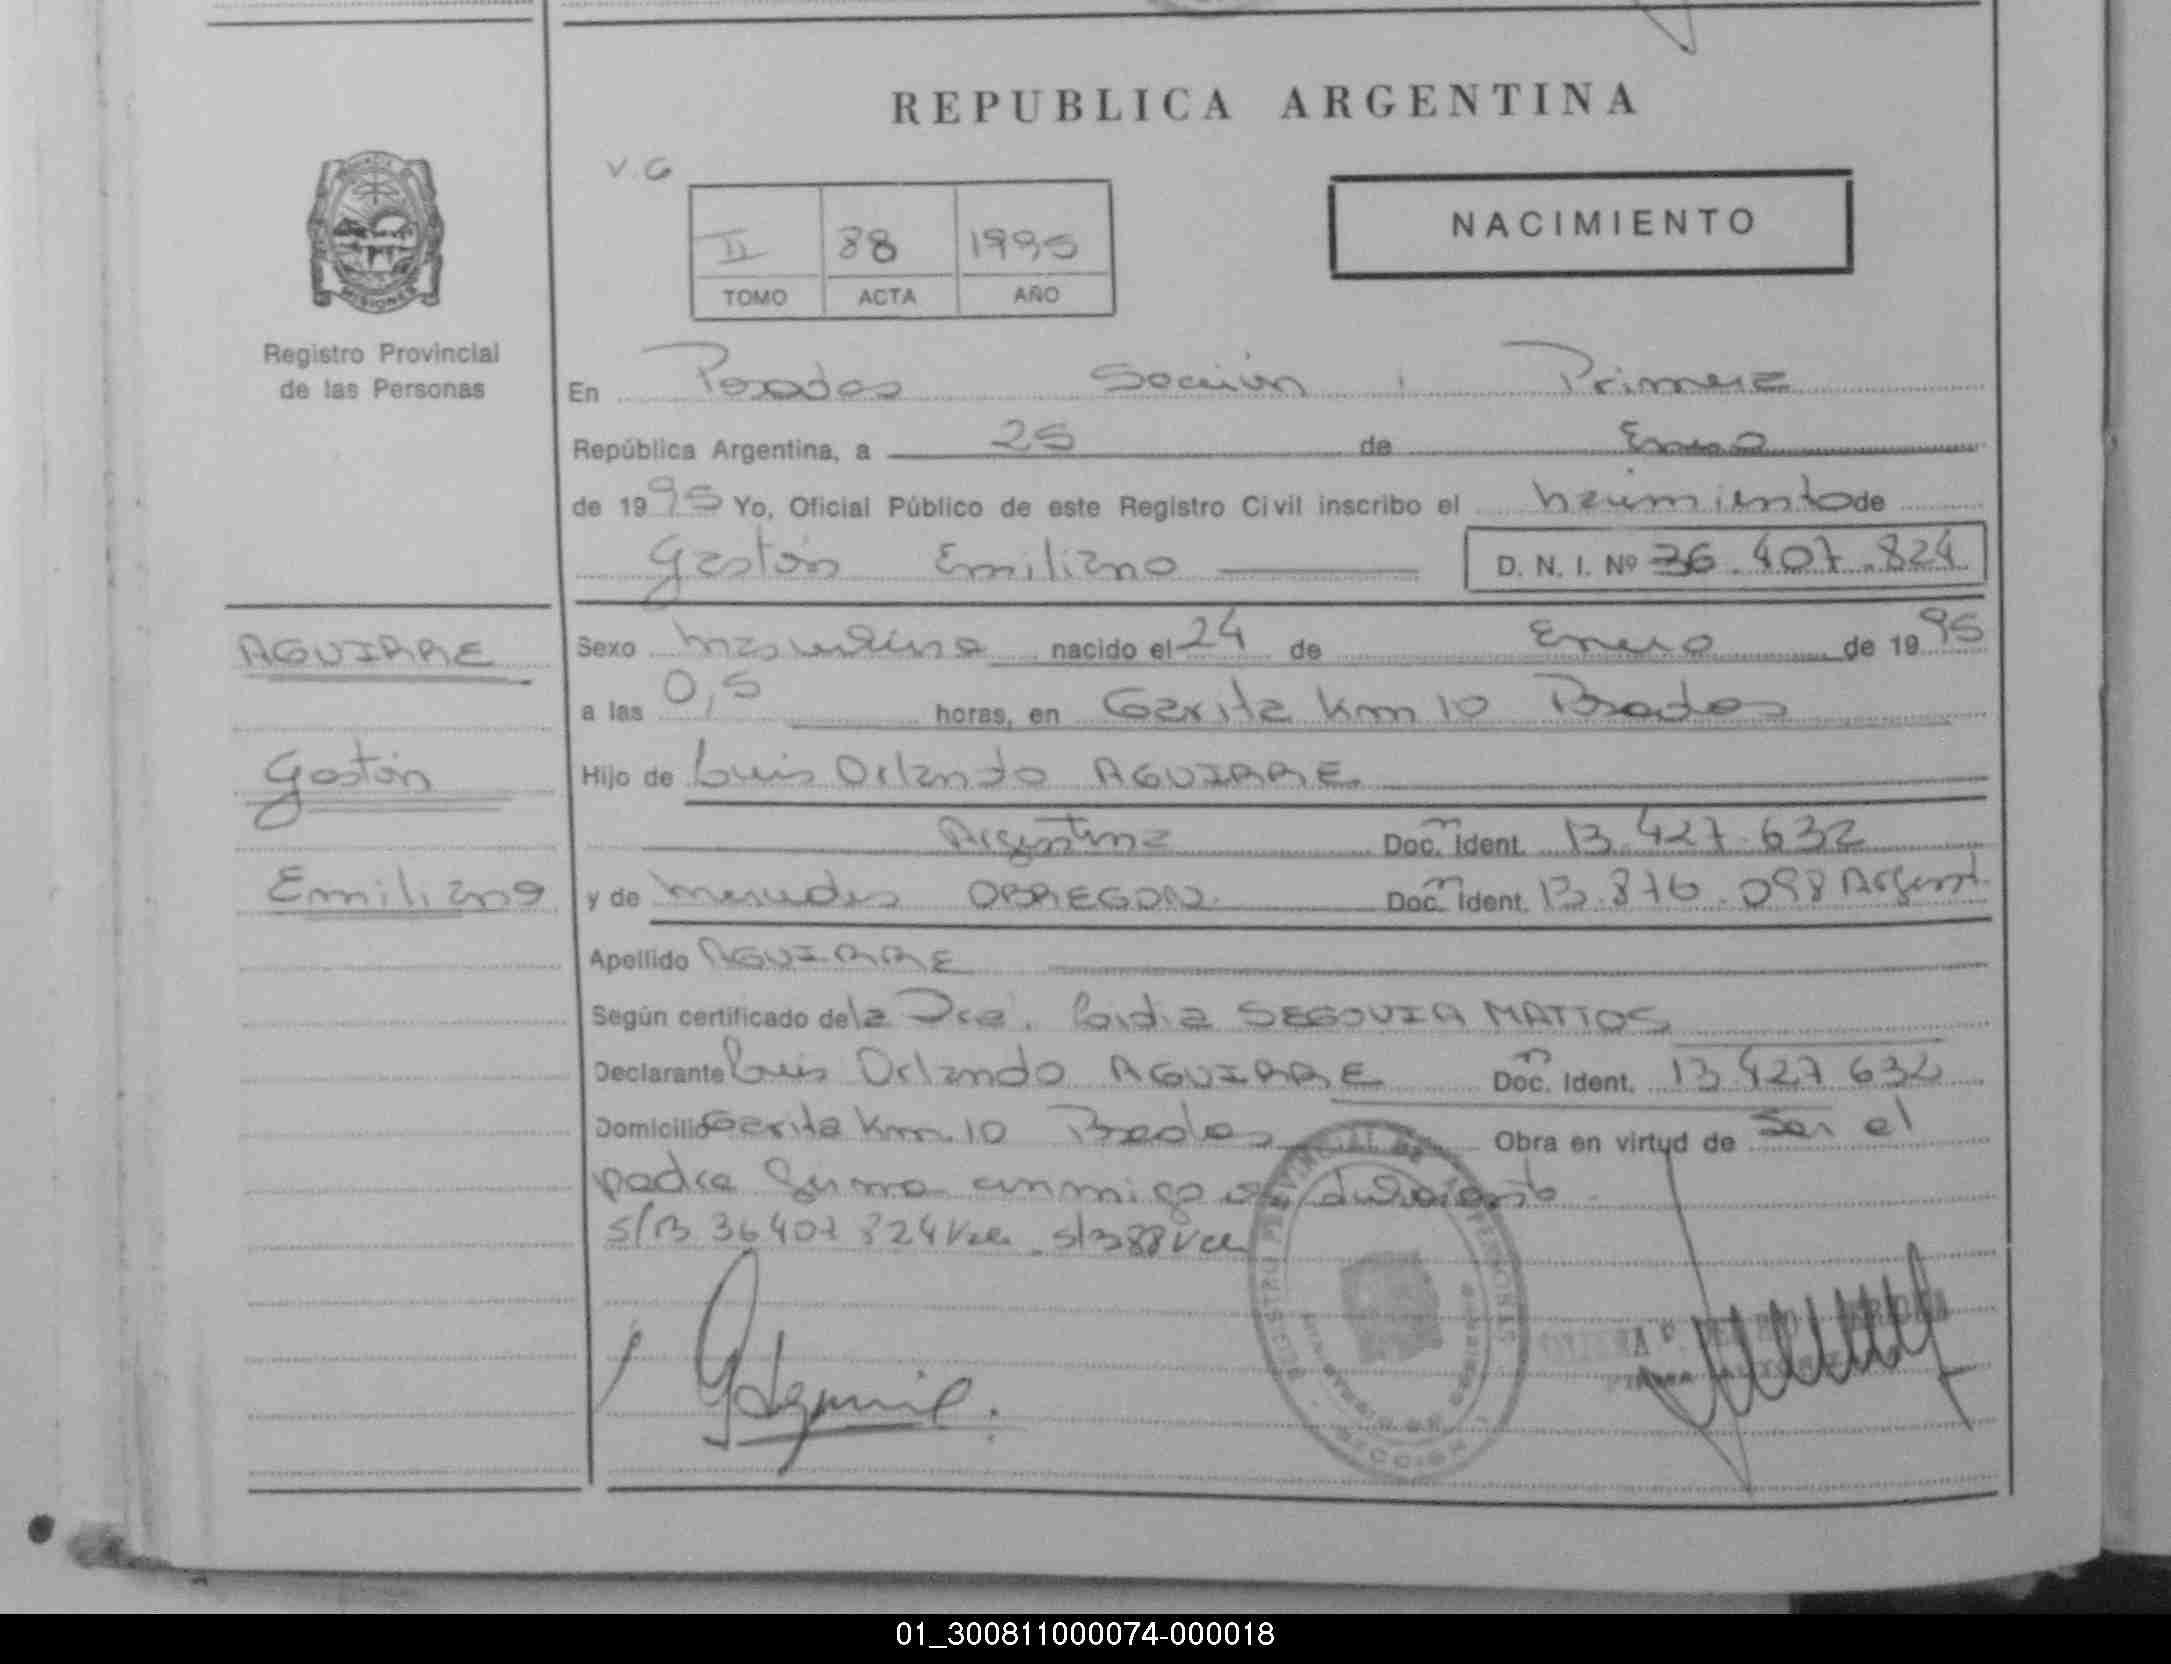 REPUBLICA ARGENTINA
V.G
NACIMIENTO
II 88 1995
TOMO ACTA AÑO
MISIONES
Registro Provincial
de las Personas
En Posadas Sección Primera
República Argentina, a 25 de Enero
de 1995 Yo, Oficial Público de este Registro Civil inscribo el nacimiento de
Gastón Emiliano D. N. I. Nº 36.407.824
AGUIRRE
Gastón
Emiliano
Sexo masculino nacido el 24 de Enero de 1995
a las 0,5 horas, en Garita Km 10 Posadas
Hijo de Luis Orlando AGUIRRE
Argentina Doc. Ident. m 13.427.632
y de Mercedes OBREGON Doc. Ident. m 13.876.098 Argent.
Apellido AGUIRRE
Según certificado de la Dra. SEGOVIA MATTOS
Declarante Luis Orlando AGUIRRE Doc. Ident. m 13 427 632
Domicilio Garita Km. 10 Posadas Obra en virtud de Ser el
padre firma conmigo el declarante
s/B 36 407 824 Vale s/B 88 Vale
REGISTRO PROVINCIAL DE LAS PERSONAS
SECCION
01_300811000074-000018